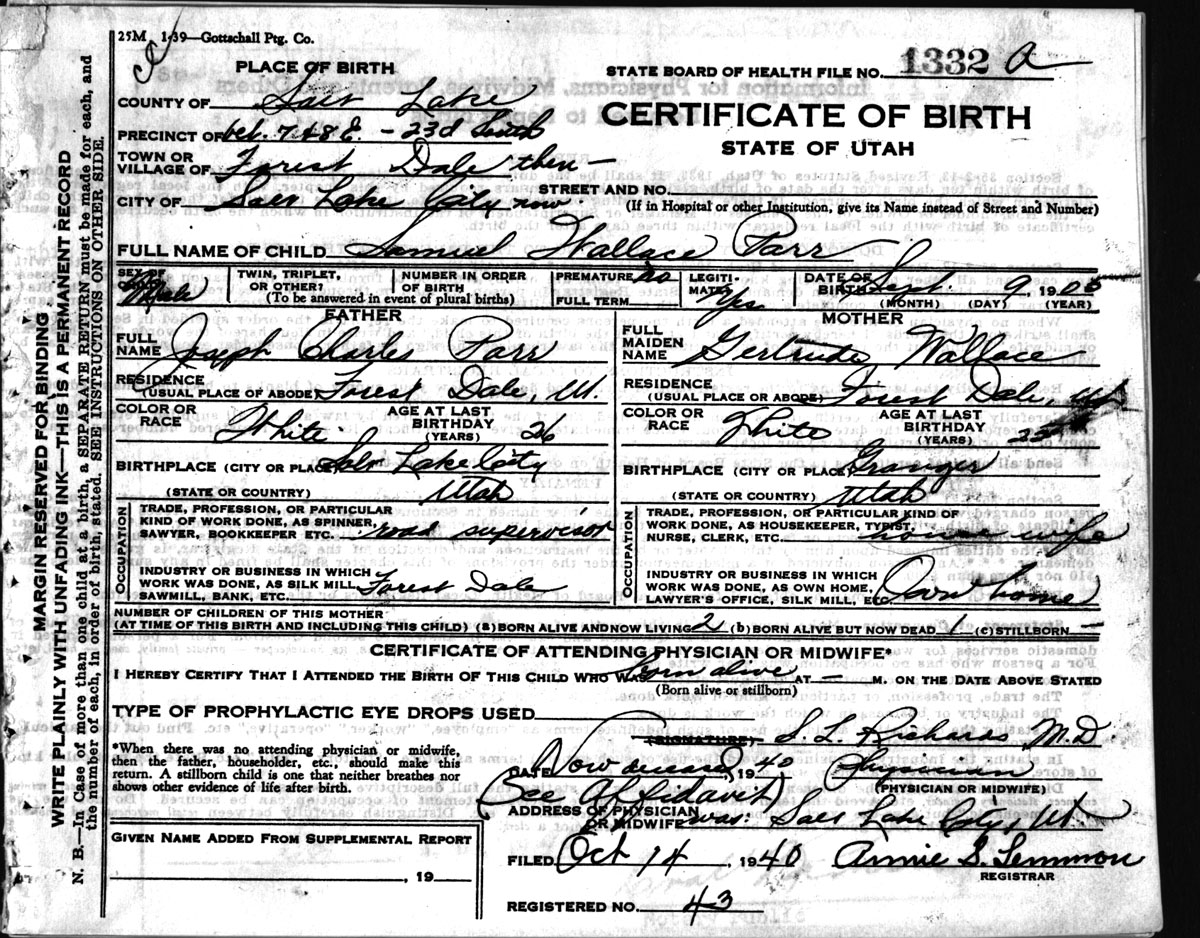 25M 1-39—Gottschall Ptg. Co.
PLACE OF BIRTH
STATE BOARD OF HEALTH FILE NO. 1332 a
COUNTY OF Salt Lake
CERTIFICATE OF BIRTH
PRECINCT OF bet. 7 & 8 E. - 23d South
STATE OF UTAH
TOWN OR VILLAGE OF Forest Dale then —
STREET AND NO.
CITY OF Salt Lake City now.
(If in Hospital or other Institution, give its Name instead of Street and Number)
FULL NAME OF CHILD Samuel Wallace Parr
SEX OF CHILD Male
TWIN, TRIPLET, OR OTHER?
NUMBER IN ORDER OF BIRTH
(To be answered in event of plural births)
PREMATURE no
FULL TERM
LEGITIMATE? Yes
DATE OF BIRTH Sept. 9 1905
(MONTH) (DAY) (YEAR)
FATHER
FULL NAME Joseph Charles Parr
RESIDENCE (USUAL PLACE OF ABODE) Forest Dale, Ut.
COLOR OR RACE White
AGE AT LAST BIRTHDAY (YEARS) 26
BIRTHPLACE (CITY OR PLACE) Salt Lake City
(STATE OR COUNTRY) Utah
OCCUPATION
TRADE, PROFESSION, OR PARTICULAR
KIND OF WORK DONE, AS SPINNER,
SAWYER, BOOKKEEPER ETC. road supervisor
INDUSTRY OR BUSINESS IN WHICH
WORK WAS DONE, AS SILK MILL,
SAWMILL, BANK, ETC. Forest Dale
MOTHER
FULL MAIDEN NAME Gertrude Wallace
RESIDENCE (USUAL PLACE OR ABODE) Forest Dale, Ut
COLOR OR RACE White
AGE AT LAST BIRTHDAY (YEARS)
BIRTHPLACE (CITY OR PLACE) Granger
(STATE OR COUNTRY) Utah
OCCUPATION
TRADE, PROFESSION, OR PARTICULAR KIND OF
WORK DONE, AS HOUSEKEEPER, TYPIST,
NURSE, CLERK, ETC. house wife
INDUSTRY OR BUSINESS IN WHICH
WORK WAS DONE, AS OWN HOME,
LAWYER'S OFFICE, SILK MILL, ETC. Own home
NUMBER OF CHILDREN OF THIS MOTHER
(AT TIME OF THIS BIRTH AND INCLUDING THIS CHILD) (a) BORN ALIVE AND NOW LIVING 2 (b) BORN ALIVE BUT NOW DEAD 1 (c) STILLBORN —
CERTIFICATE OF ATTENDING PHYSICIAN OR MIDWIFE*
I HEREBY CERTIFY THAT I ATTENDED THE BIRTH OF THIS CHILD WHO WAS born alive AT — M. ON THE DATE ABOVE STATED
(Born alive or stillborn)
TYPE OF PROPHYLACTIC EYE DROPS USED
*When there was no attending physician or midwife,
then the father, householder, etc., should make this
return. A stillborn child is one that neither breathes nor
shows other evidence of life after birth.
(SIGNATURE) S. L. Richards M.D.
DATE Now deceased, 1940 Physician
(PHYSICIAN OR MIDWIFE)
(See Affidavit)
ADDRESS OF PHYSICIAN OR MIDWIFE was: Salt Lake City, Ut.
GIVEN NAME ADDED FROM SUPPLEMENTAL REPORT
, 19
FILED Oct 14, 1940 Annie S. Lemmon
REGISTRAR
REGISTERED NO. 43
MARGIN RESERVED FOR BINDING
WRITE PLAINLY WITH UNFADING INK—THIS IS A PERMANENT RECORD
N. B.—In Case of more than one child at a birth, a SEPARATE RETURN must be made for each, and
the number of each, in order of birth, stated. SEE INSTRUCTIONS ON OTHER SIDE.